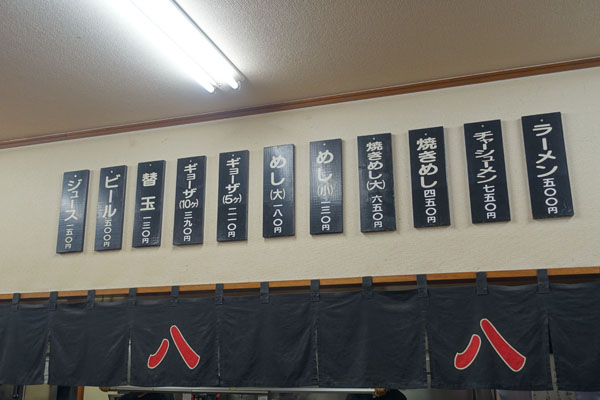 ラーメン 五〇〇円
チャーシューメン 七五〇円
焼きめし 四五〇円
焼きめし(大) 六五〇円
めし(小) 一三〇円
めし(大) 一八〇円
ギョーザ(5ヶ) 二一〇円
ギョーザ(10ヶ) 三九〇円
替玉 一三〇円
ビール 五〇〇円
ジュース 一五〇円
八
八